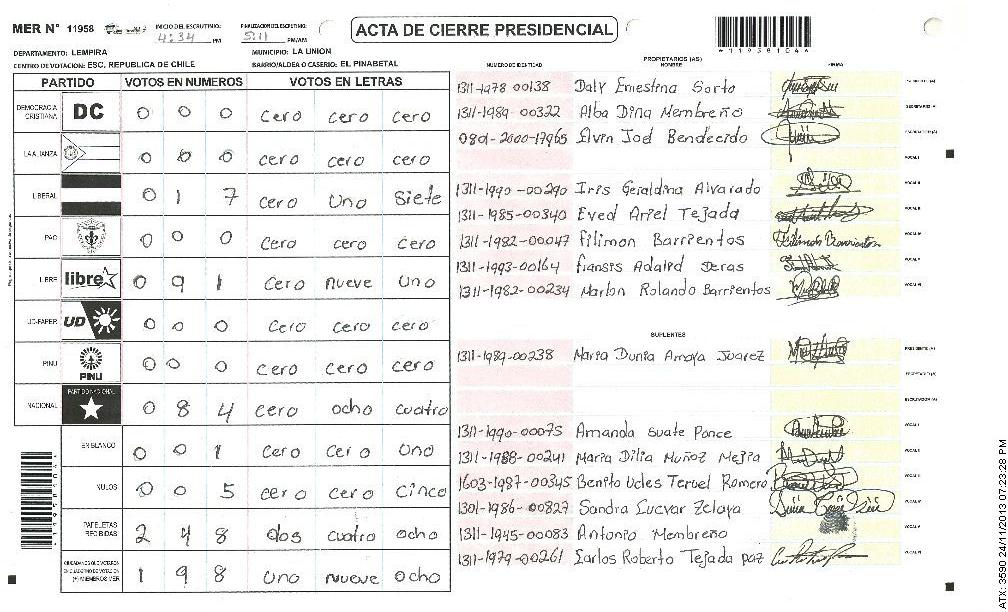 MER N° 11958
INICIO DEL ESCRUTINIO: 4:34 PM
FINALIZACION DEL ESCRUTINIO: 5:11 PM/AM
ACTA DE CIERRE PRESIDENCIAL
*119581046*
DEPARTAMENTO: LEMPIRA
MUNICIPIO: LA UNION
CENTRO DE VOTACION: ESC. REPUBLICA DE CHILE
BARRIO/ALDEA O CASERIO: EL PINABETAL
PARTIDO VOTOS EN NUMEROS VOTOS EN LETRAS
DEMOCRACIA CRISTIANA DC 0 0 0 cero cero cero
LA ALIANZA 0 0 0 cero cero cero
LIBERAL 0 1 7 cero Uno Siete
PAC 0 0 0 cero cero cero
LIBRE libre 0 9 1 Cero nueve Uno
UD-FAPER UD 0 0 0 Cero cero cero
PINU PINU 0 0 0 cero cero cero
NACIONAL PARTIDO NACIONAL 0 8 4 cero ocho cuatro
EN BLANCO 0 0 1 Cero Cero Uno
NULOS 0 0 5 cero cero Cinco
PAPELETAS RECIBIDAS 2 4 8 dos cuatro ocho
CIUDADANOS QUE VOTARON (+) MIEMBROS MER 1 9 8 Uno nueve Ocho
PROPIETARIOS (AS)
NUMERO DE IDENTIDAD NOMBRE FIRMA
1311-1978 00138 Daly Ernestina Sorto
1311-1989-00322 Alba Dina Membreño
0801-2000-17965 Elvin Joel Bendecido
1311-1990-00290 Iris Geraldina Alvarado
1311-1985-00340 Eved Ariel Tejada
1311-1982-00047 Filimon Barrientos Filimon Barrientos
1311-1993-00164 fransis Adalid Deras
1311-1982-00234 Marlon Rolando Barrientos
SUPLENTES
1311-1989-00238 Maria Dunia Amaya Juarez
PRESIDENTE (A)
SECRETARIO (A)
ESCRUTADOR (A)
1311-1990-00075 Amanda Suate Ponce
1311-1988-00241 Maria Dilia Muñoz Mejia
1603-1987-00345 Benito Ucles Teruel Romero
1301-1986-00827 Sandra Cuevar Zelaya
1311-1945-00083 Antonio Membreño
1311-1979-00261 Carlos Roberto Tejada paz
ATX: 3590 24/11/2013 07:23:28 PM